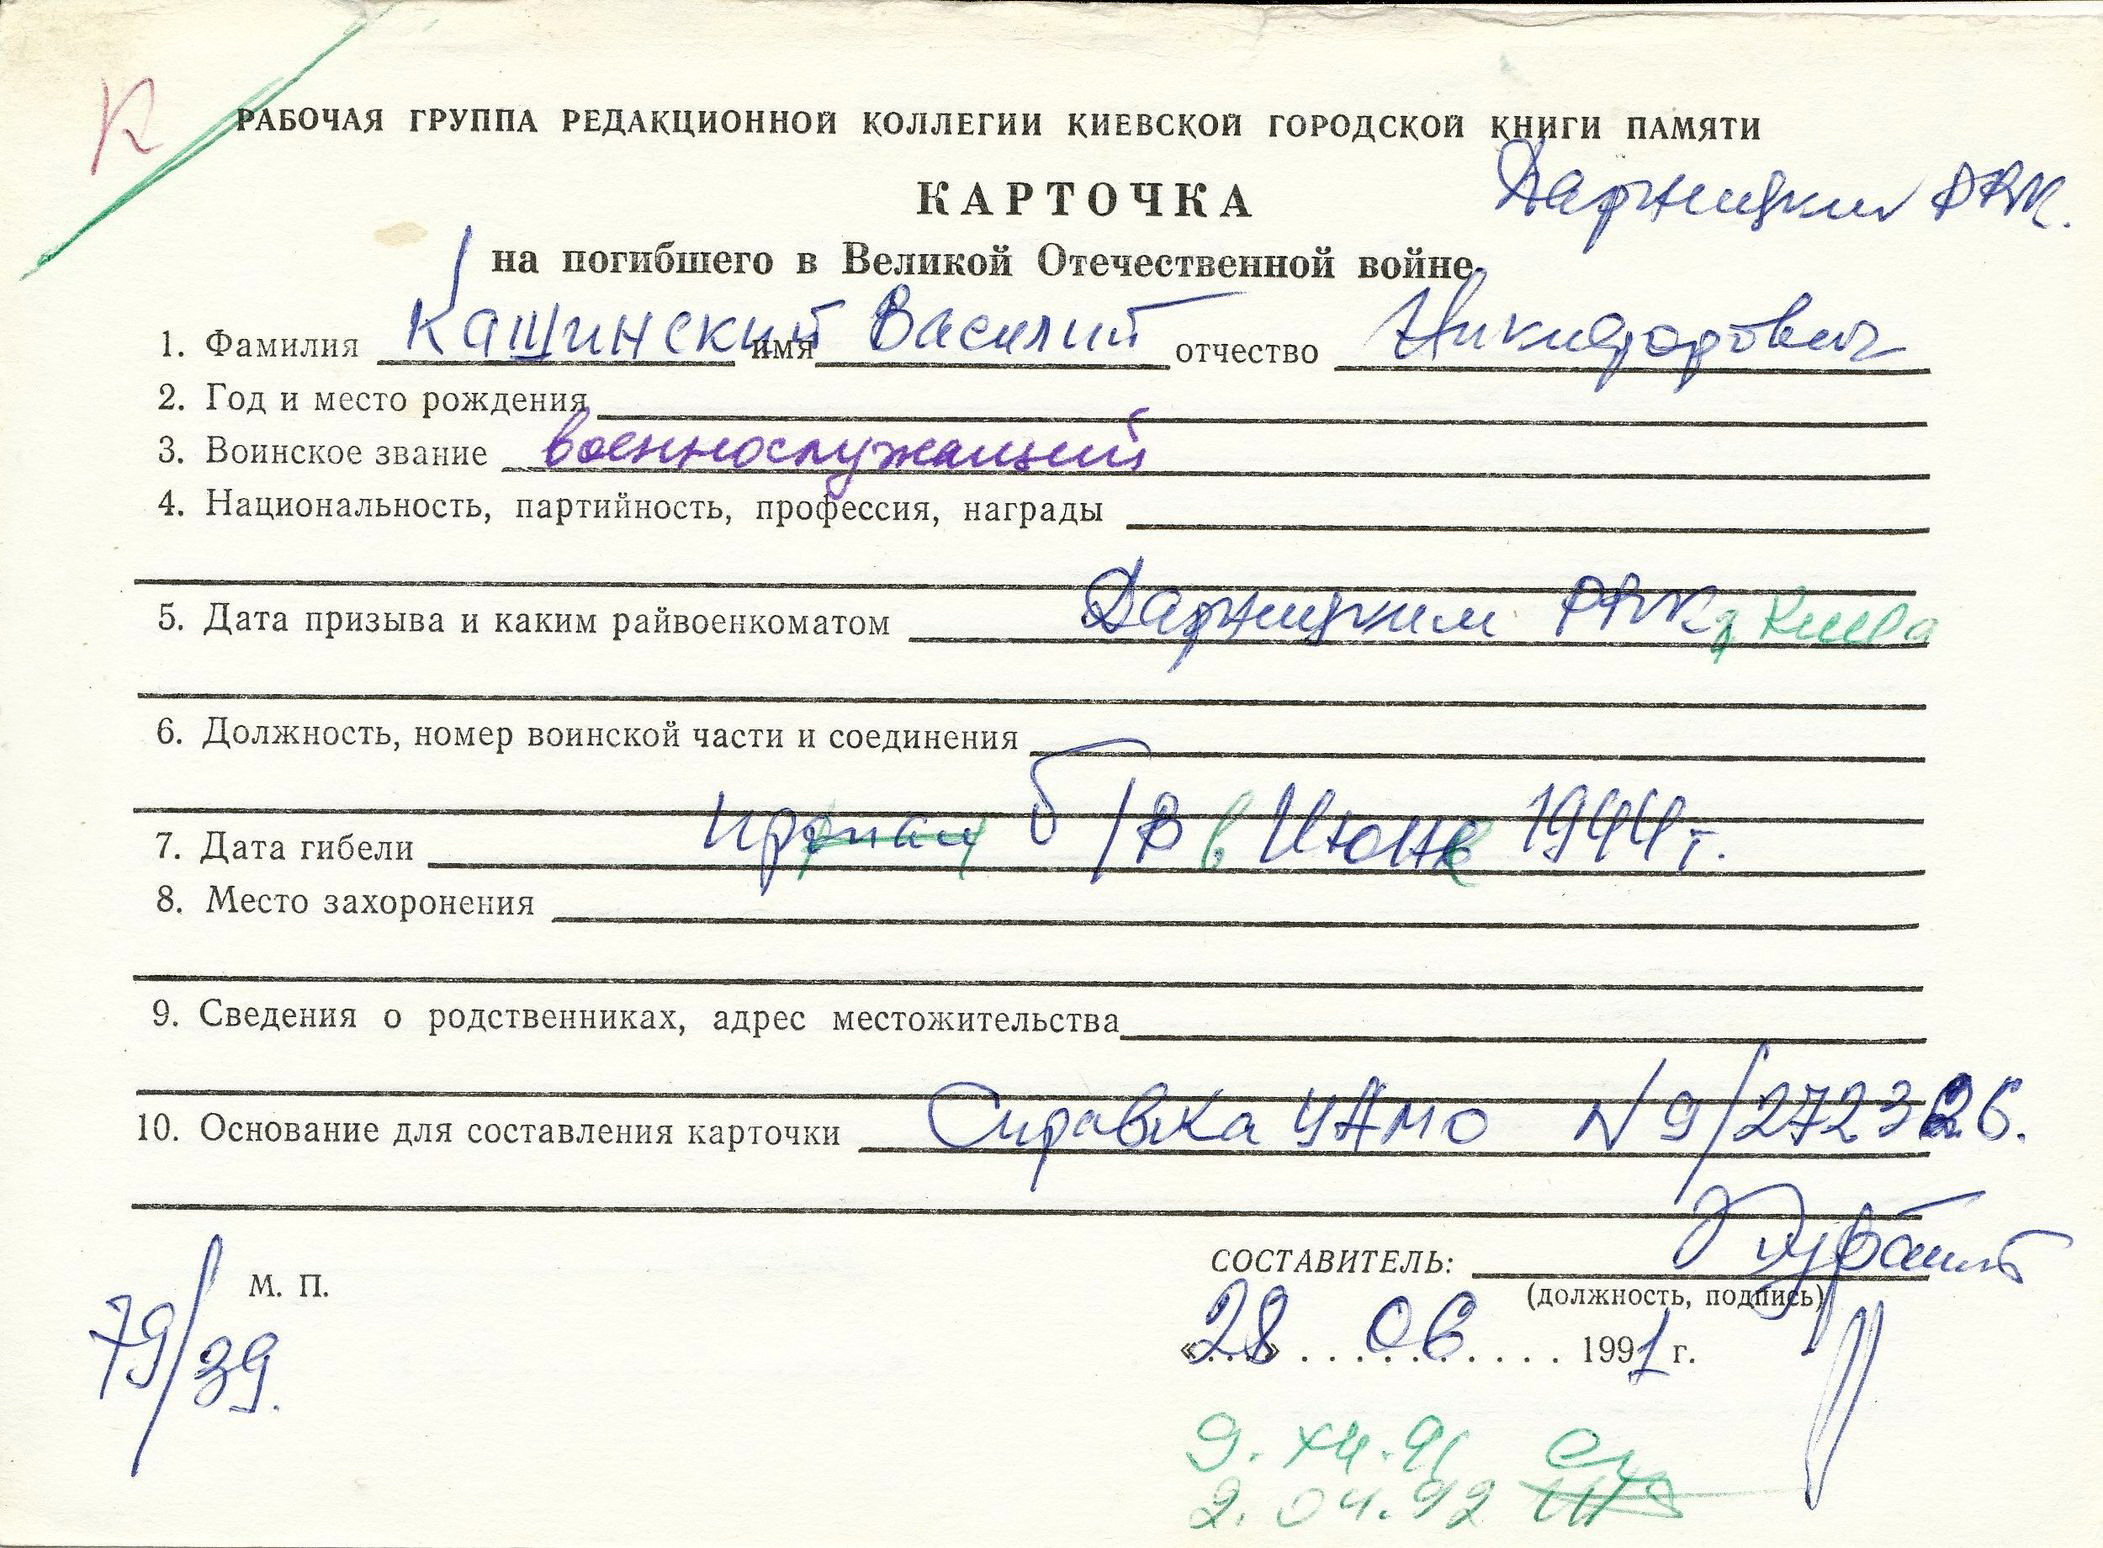 К
РАБОЧАЯ ГРУППА РЕДАКЦИОННОЙ КОЛЛЕГИИ КИЕВСКОЙ ГОРОДСКОЙ КНИГИ ПАМЯТИ
КАРТОЧКА Дарницкий РВК.
на погибшего в Великой Отечественной войне
1. Фамилия Кашинский имя Василий отчество Никифорович
2. Год и место рождения
3. Воинское звание военнослужащий
4. Национальность, партийность, профессия, награды
5. Дата призыва и каким райвоенкоматом Дарницким РВК г Киева
6. Должность, номер воинской части и соединения
7. Дата гибели пропал б/в в Июне 1944 г.
8. Место захоронения
9. Сведения о родственниках, адрес местожительства
10. Основание для составления карточки Справка ЦАМО N 9/272326.
СОСТАВИТЕЛЬ:
М. П.
(должность, подпись)
79/39.
«28» 06 1991 г.
9.XII.91
2.04.92